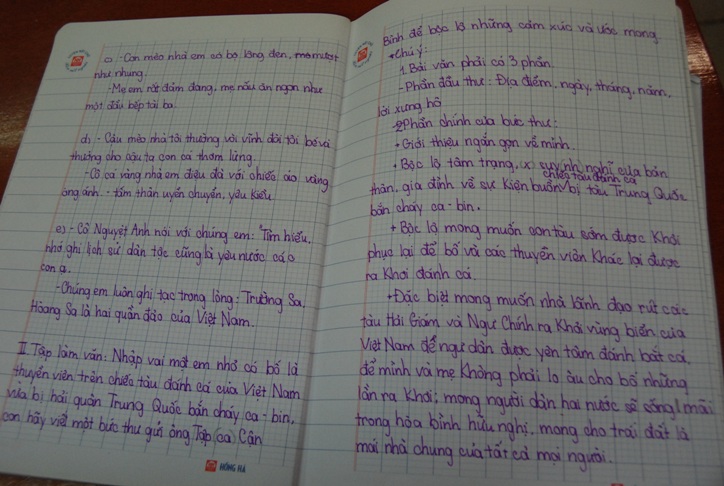 c) - Con mèo nhà em có bộ lông đen, mềm mượt
như nhung.
- Mẹ em rất đảm đang, mẹ nấu ăn ngon như
một đầu bếp tài ba.
d) - Cậu mèo nhà tôi thường vòi vĩnh đòi tôi bố và
thưởng cho cậu ta con cá thơm lừng.
- Cô cá vàng nhà em điệu đà với chiếc áo vàng
óng ánh. - tấm thân uyển chuyển, yêu kiều.
e) - Cô Nguyệt Anh nói với chúng em: "Tìm hiểu,
nhớ ghi lịch sử dân tộc cũng là yêu nước các
con ạ.
- Chúng em luôn ghi tạc trong lòng: Trường Sa,
Hoàng Sa là hai quần đảo của Việt Nam.
II. Tập làm văn: Nhập vai một em nhỏ có bố là
thuyền viên trên chiếc tàu đánh cá của Việt Nam
vừa bị hải quân Trung Quốc bắn cháy ca-bin,
con hãy viết một bức thư gửi ông Tập (cá) Cận
HỒNG HÀ
Bình để bộc lộ những cảm xúc và ước mong
* Chú ý:
1. Bài văn phải có 3 phần.
- Phần đầu thư: Địa điểm, ngày, tháng, năm,
lời xưng hô
- Phần chính của bức thư:
+ Giới thiệu ngắn gọn về mình.
+ Bộc lộ tâm trạng, suy nghĩ của bản
thân, gia đình về sự kiện buồn chiếc tàu đánh cá bị tàu Trung Quốc
bắn cháy ca-bin.
+ Bộc lộ mong muốn con tàu sớm được khôi
phục lại để bố và các thuyền viên khác lại được
ra khơi đánh cá.
+ Đặc biệt mong muốn nhà lãnh đạo rút các
tàu Hải Giám và Ngư Chính ra khỏi vùng biển của
Việt Nam để ngư dân được yên tâm đánh bắt cá,
để mình và mẹ không phải lo âu cho bố những
lần ra khơi; mong người dân hai nước sẽ sống mãi
trong hòa bình hữu nghị, mong cho trái đất là
mái nhà chung của tất cả mọi người.